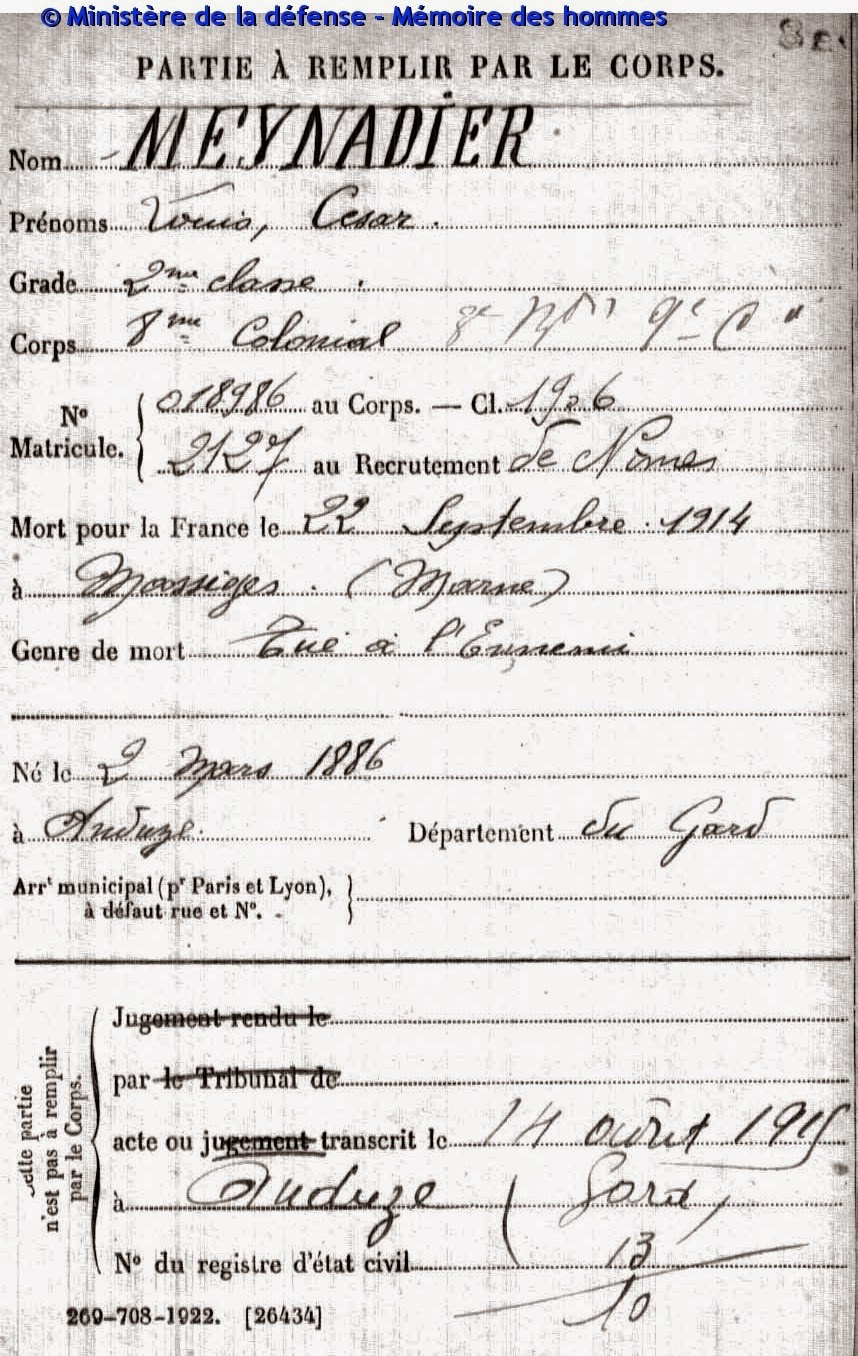 © Ministère de la défense - Mémoire des hommes
PARTIE À REMPLIR PAR LE CORPS.
Nom MEYNADIER
Prénoms Louis, Cesar.
Grade 2me classe.
Corps 8me Colonial 9e C
No Matricule. 018986 au Corps. — Cl. 1906
2127 au Recrutement de Nimes
Mort pour la France le 22 Septembre 1914
à Massiges. (Marne)
Genre de mort Tué à l'Ennemi
Né le 2 Mars 1886
à Anduze. Département du Gard
Arrt municipal (pr Paris et Lyon),
à défaut rue et No.
Cette partie
n'est pas à remplir
par le Corps.
Jugement rendu le
par le Tribunal de
acte ou jugement transcrit le 14 août 1915
à Anduze (Gard)
No du registre d'état civil 13
10
269-708-1922. [26434]